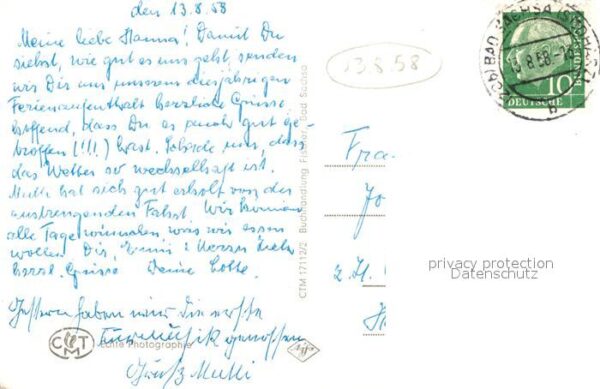 den 13.8.58
Meine liebe Hanna! Damit Du
siehst, wie gut es uns geht, senden
wir Dir aus unserem diesjährigen
Ferienaufenthalt herzliche Grüsse
hoffend, dass Du es auch gut ge-
troffen (!!!) hast. Schade nur, dass
das Wetter so wechselhaft ist.
Mutti hat sich gut erholt von der
anstrengenden Fahrt. Wir können
alle Tage was wir essen
wollen. Dir, & Herrn
Herzl. Grüsse Deine Lotte.
Gestern haben wir die erste
Kurmusik genossen
Gruß Mutti
13.8.58
BAD SACHSA (SÜDHARZ)
8.58
b
10
DEUTSCHE
BUNDESPOST
Fra
z. Zt.
CTM 17112/2 Buchhandlung Fischer, Bad Sachsa
CTM
Echte Photographie
Agfa
privacy protection
Datenschutz